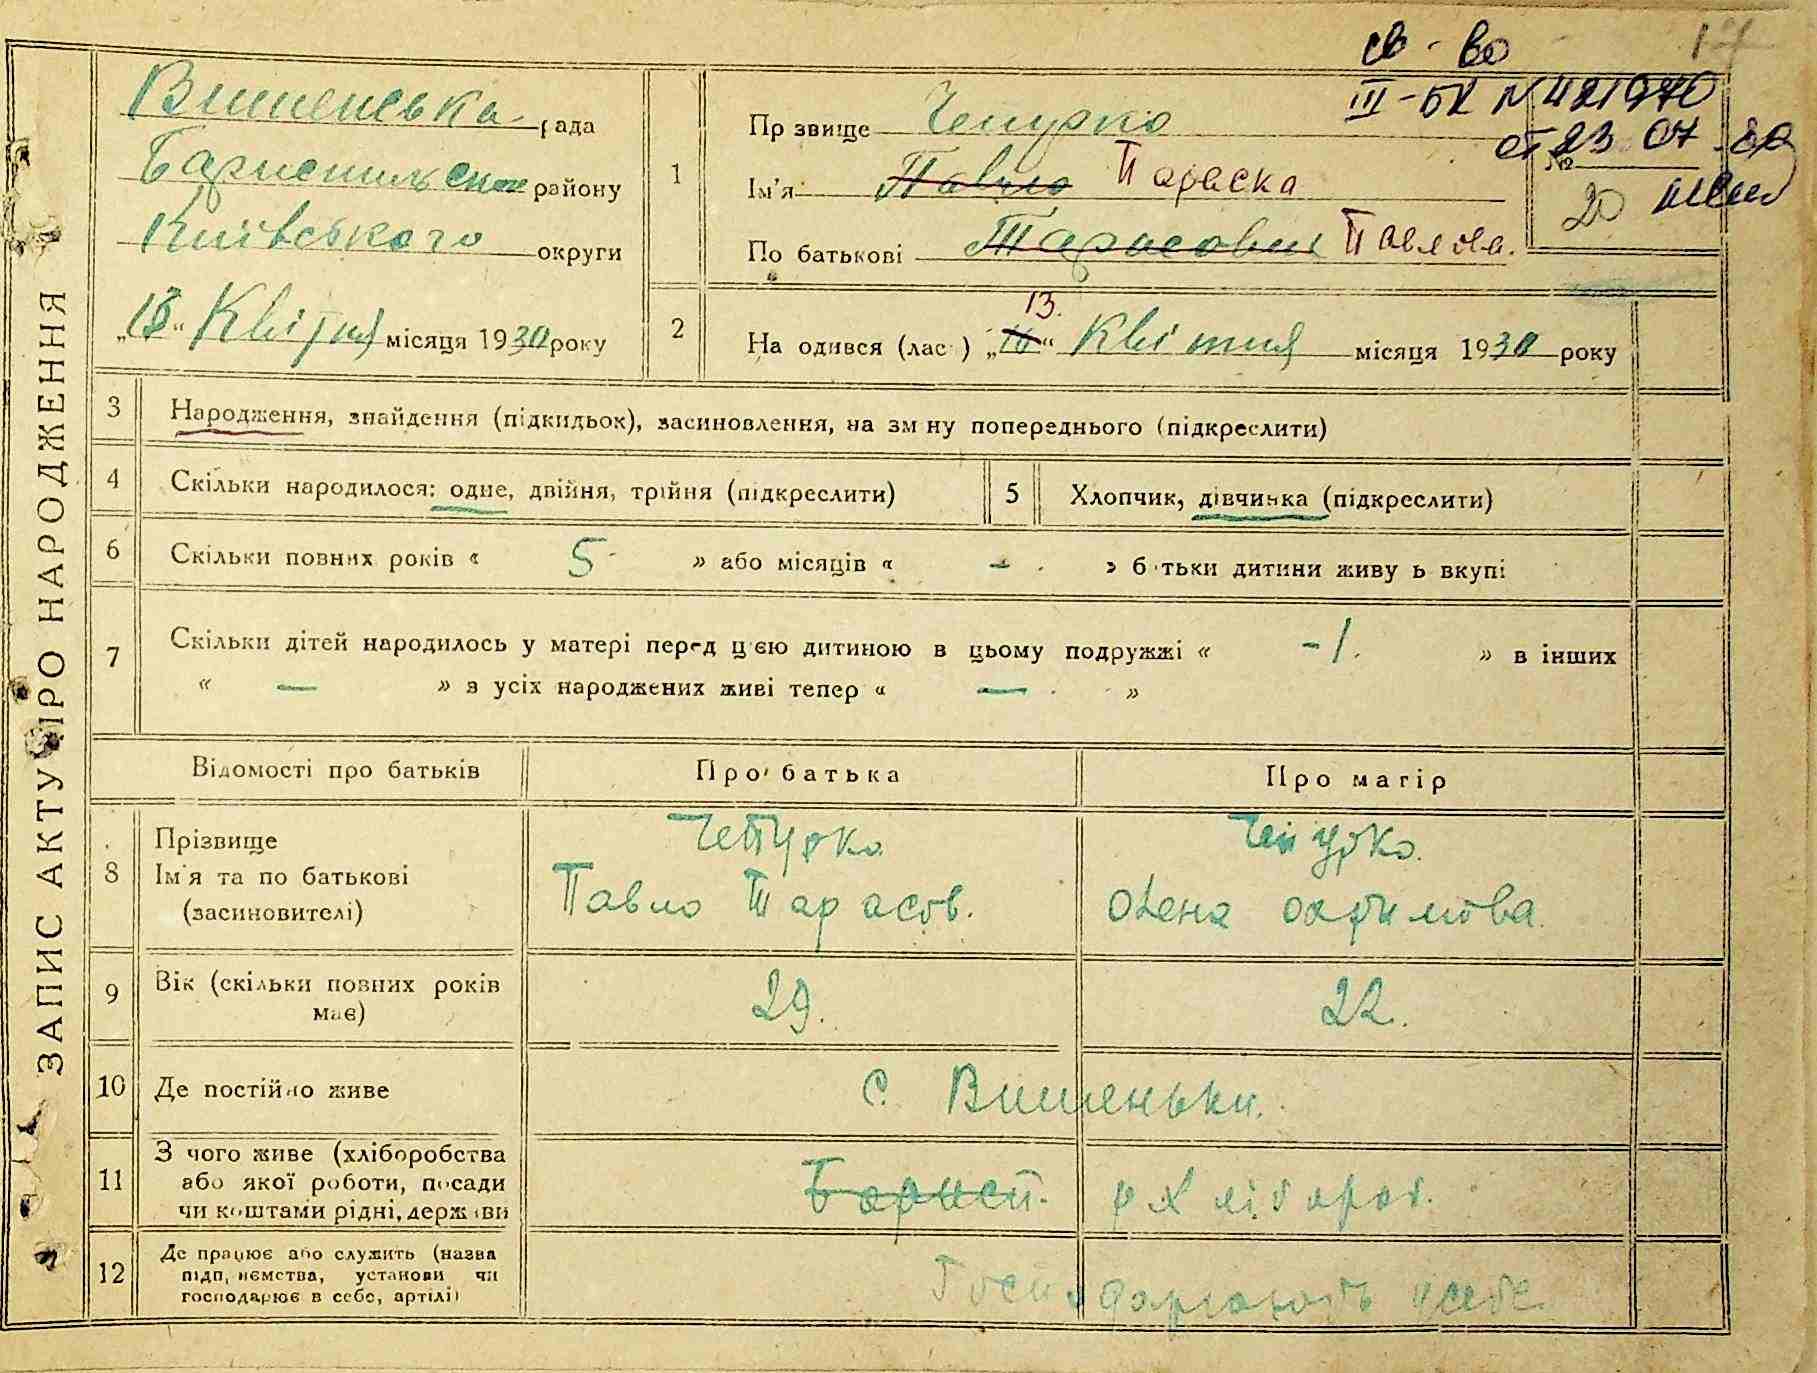 17
св-во
III-БК N 421970
от 23.07.80
ЗАПИС АКТУ ПРО НАРОДЖЕННЯ
Вишенська рада
Бориспильськ району
Київського округи
"13" Квітня місяця 1930 року
1
Пр звище Чепурко
Ім'я Павло Параска
По батькові Тарасович Павлов.
№
20
2
На одився (лас ) 13. "10" Квітня місяця 1930 року
3 Народження, знайдення (підкидьок), засиновлення, на зм ну попереднього (підкреслити)
4 Скільки народилося: одне, двійня, трійня (підкреслити)
5 Хлопчик, дівчинка (підкреслити)
6 Скільки повних років « 5 » або місяців « - » б тьки дитини живу ь вкупі
7 Скільки дітей народилось у матері перед цією дитиною в цьому подружжі « -1. » в інших
« — » з усіх народжених живі тепер « — »
Відомості про батьків Про батька Про матір
8 Прізвище
Ім'я та по батькові
(засиновителі)
Чепурко
Павло Тарасов.
Чепурко.
Олена Охримова.
9 Вік (скільки повних років
має)
29. 22.
10 Де постійно живе с. Вишеньки.
11 З чого живе (хліборобства
або якої роботи, посади
чи коштами рідні, держ ви
Борисп. хлібороб.
12 Де працює або служить (назва
підп, иємства, установи чи
господарює в себе, артілі)
Господарюють усебе